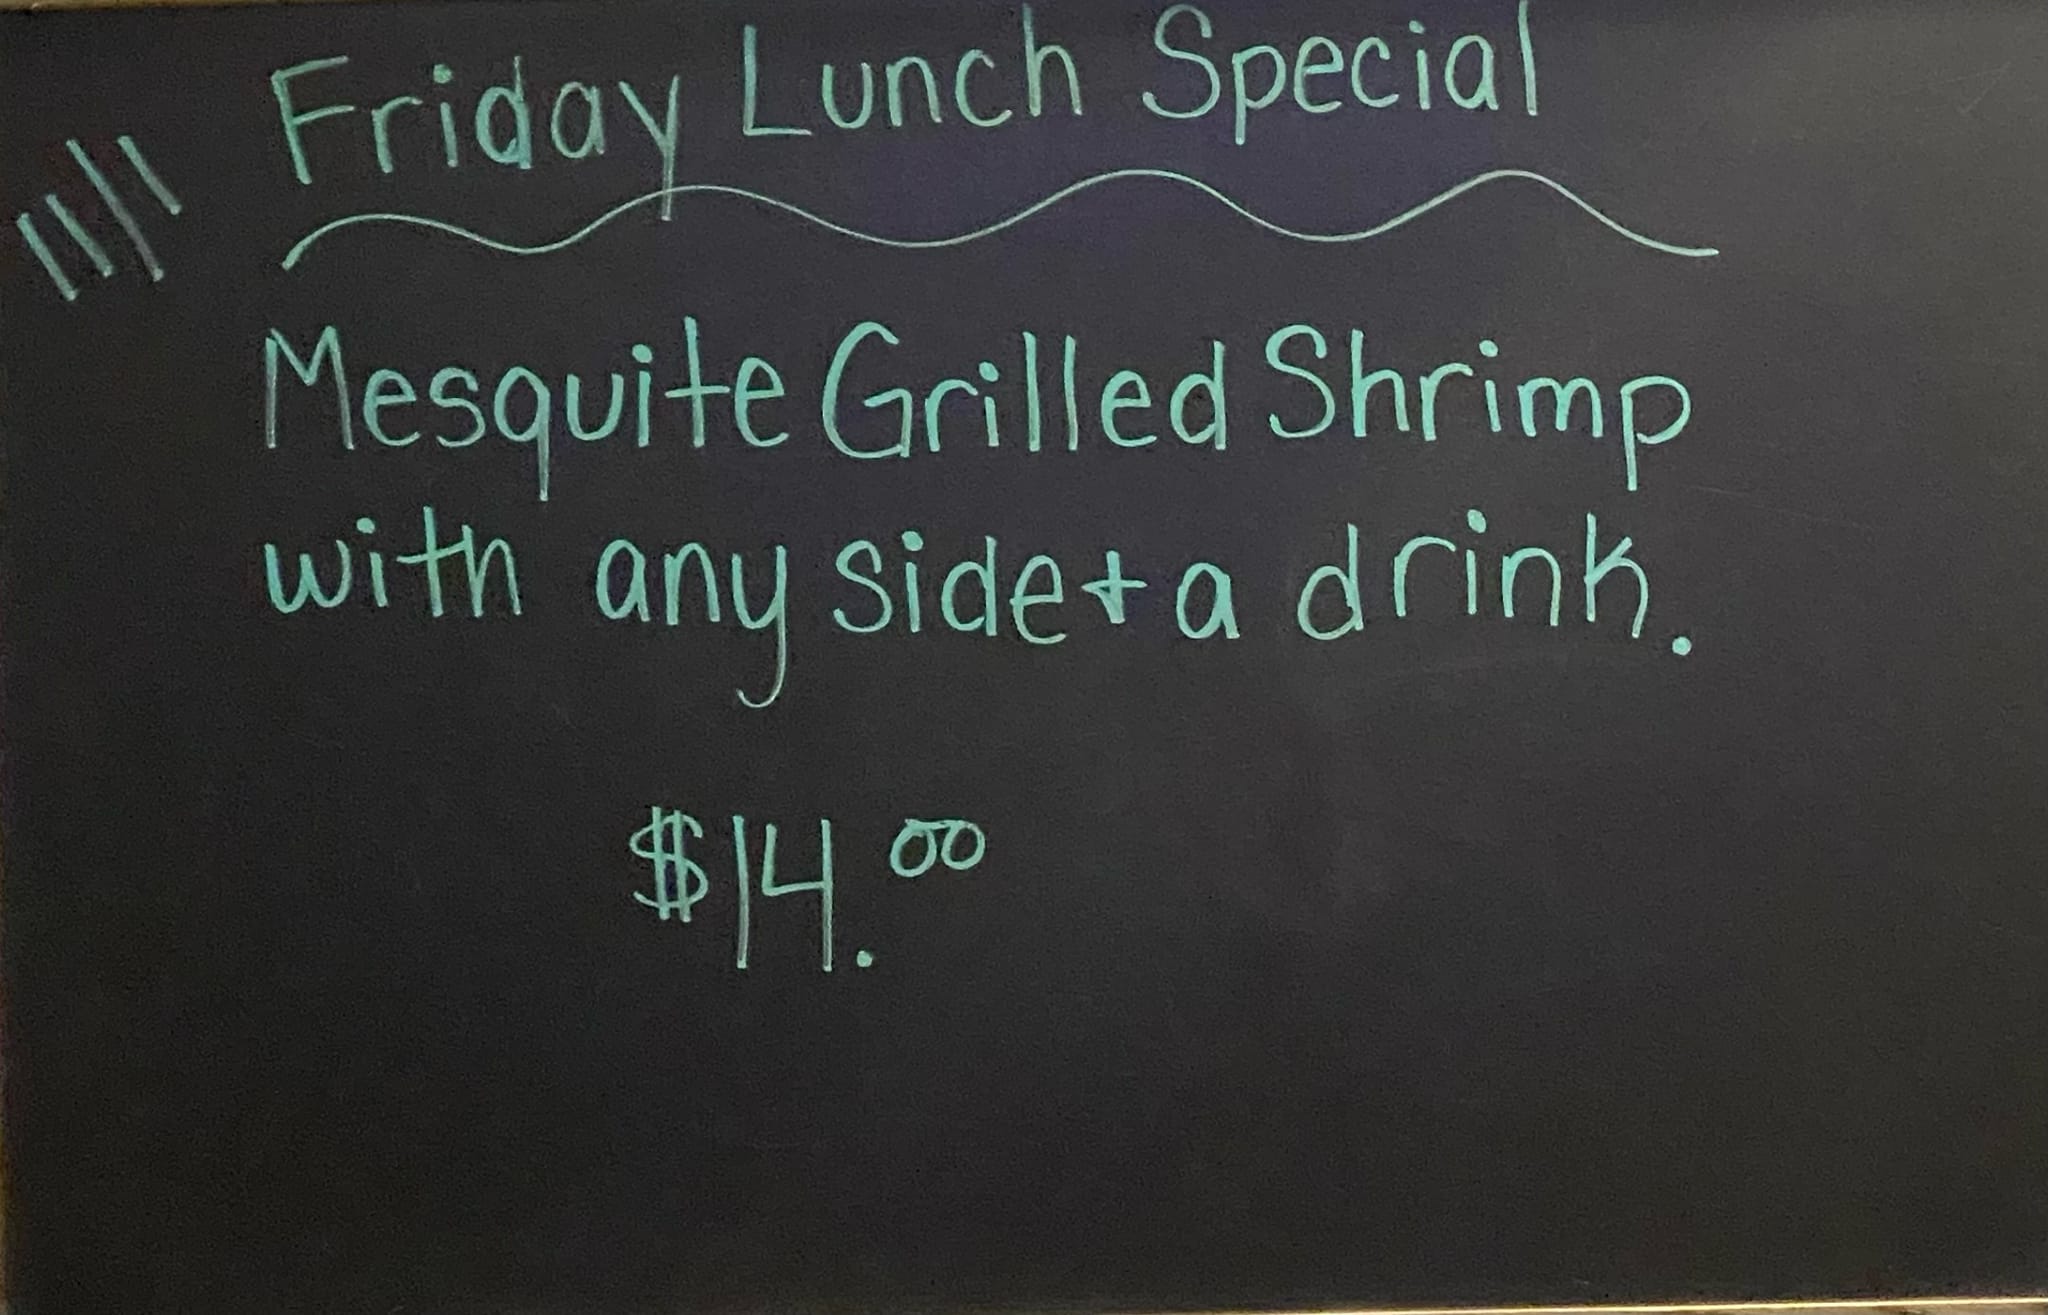 Friday Lunch Special
Mesquite Grilled Shrimp
with any side + a drink.
$14.00